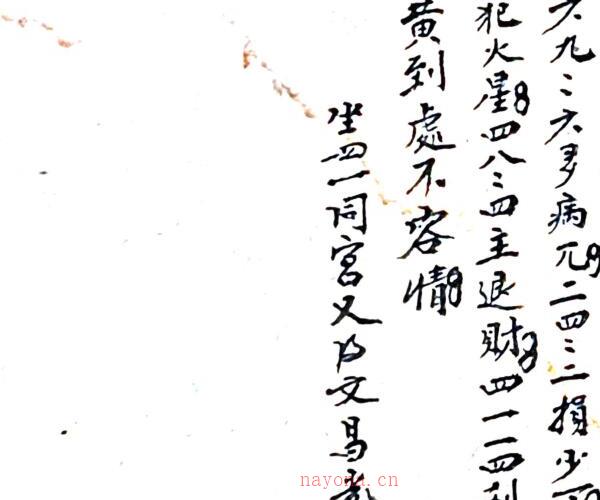 六九〻六多病兀二四〻二損少
犯火星四八〻四主退財四一一四到
黄到處不容情
坐四一同宮又为文昌
nayona.cn